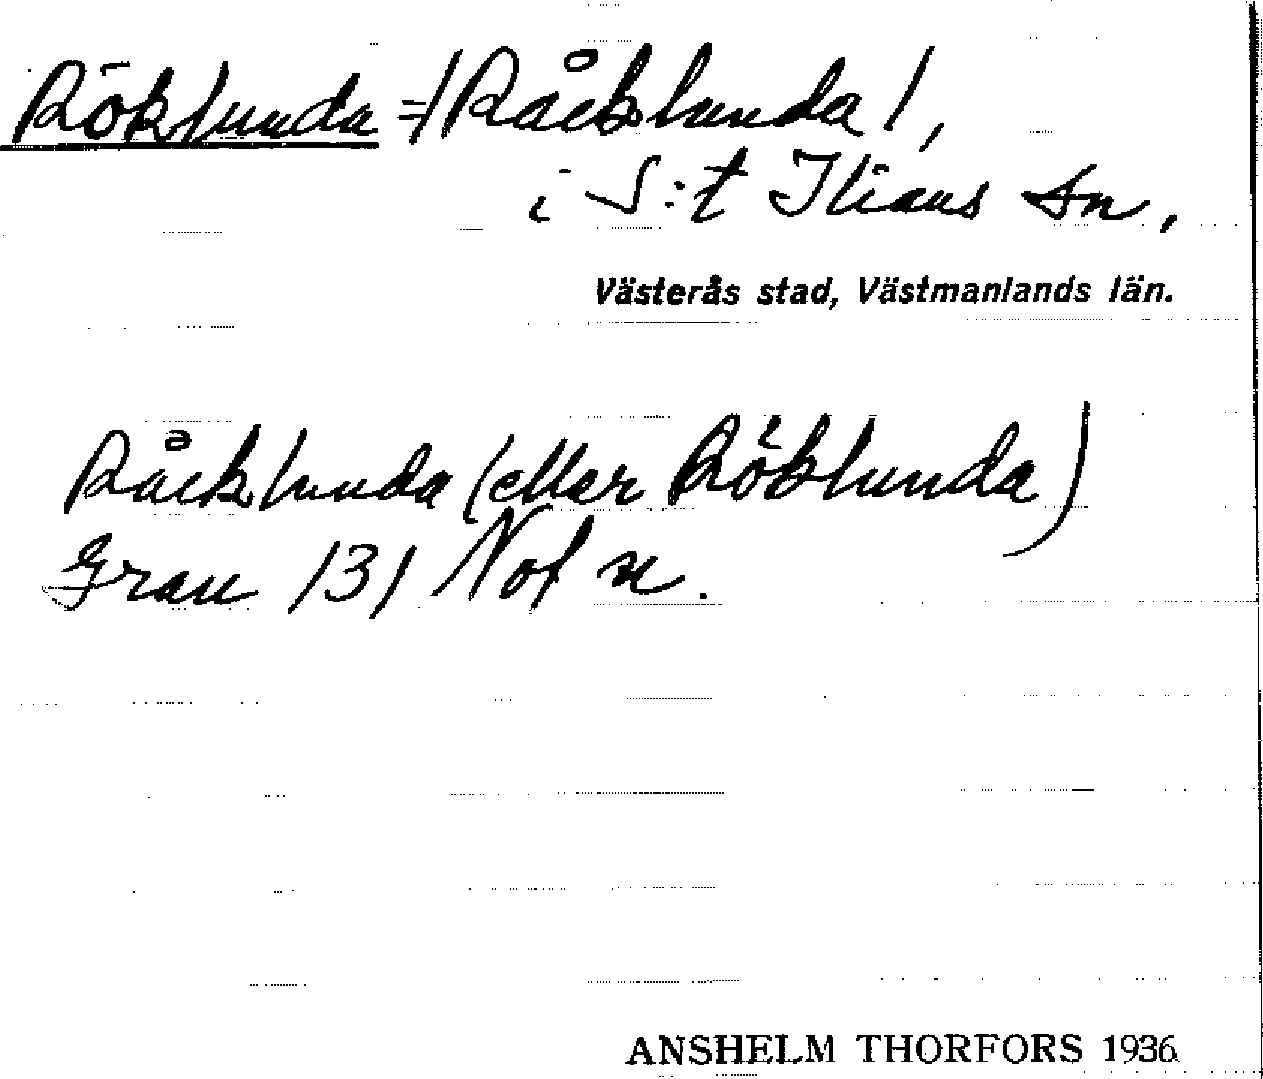 Röklunda =/Råcklunda/,
i S:t Ilians sn,
Västerås stad, Västmanlands län.
Råcklunda (eller Röklunda)
Grau 131 Not n.
ANSHELM THORFORS 1936